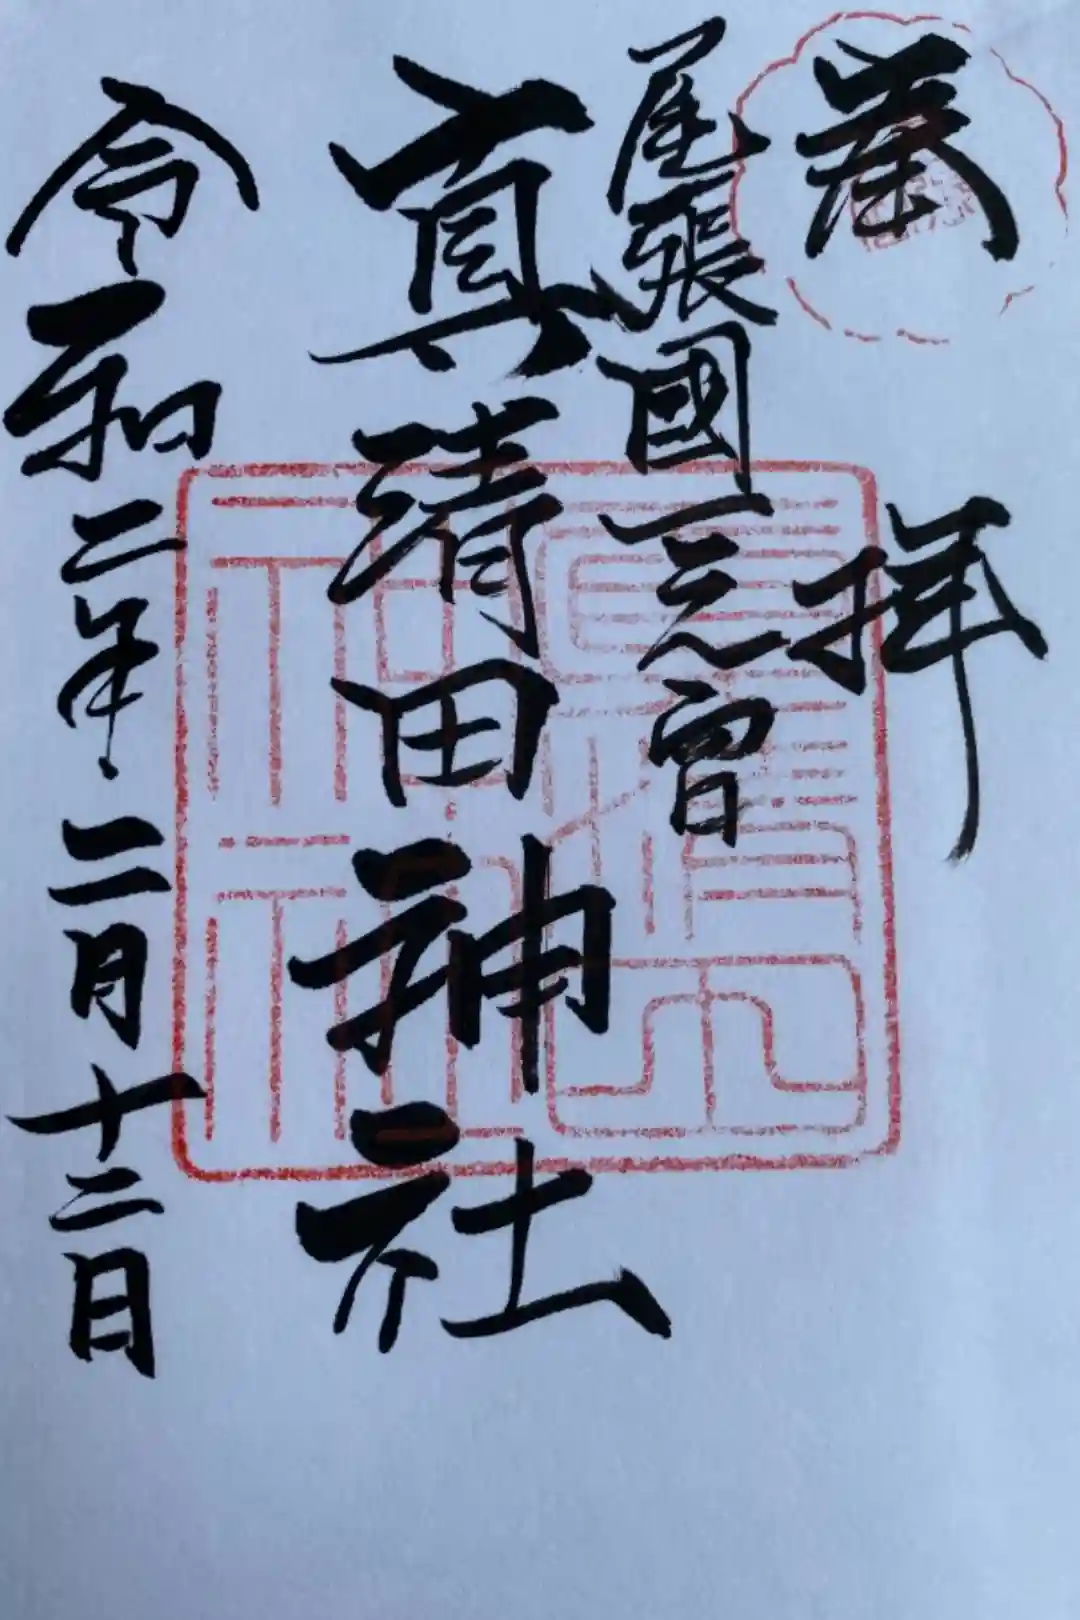 奉拝
尾張國一之宮
真清田神社
令和二年二月十二日